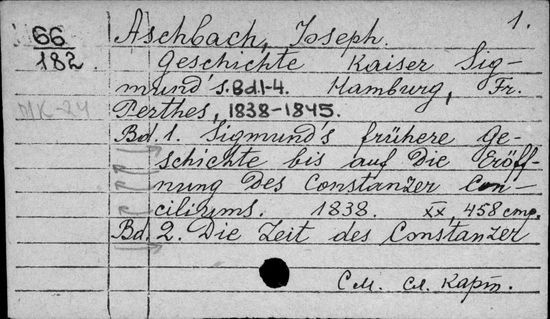 1.
66
182
Aschbach, Joseph.
Geschichte Kaiser Sig-
mund's. Bd. 1-4. Hamburg, Fr.
MK-24
Perthes, 1838-1845.
Bd. 1. Sigmund's frühere Ge-
schichte bis auf die Eröff-
nung des Constanzer Con-
ciliums. 1838. XX, 458 стр.
Bd. 2. Die Zeit des Constanzer
См. сл. карт.